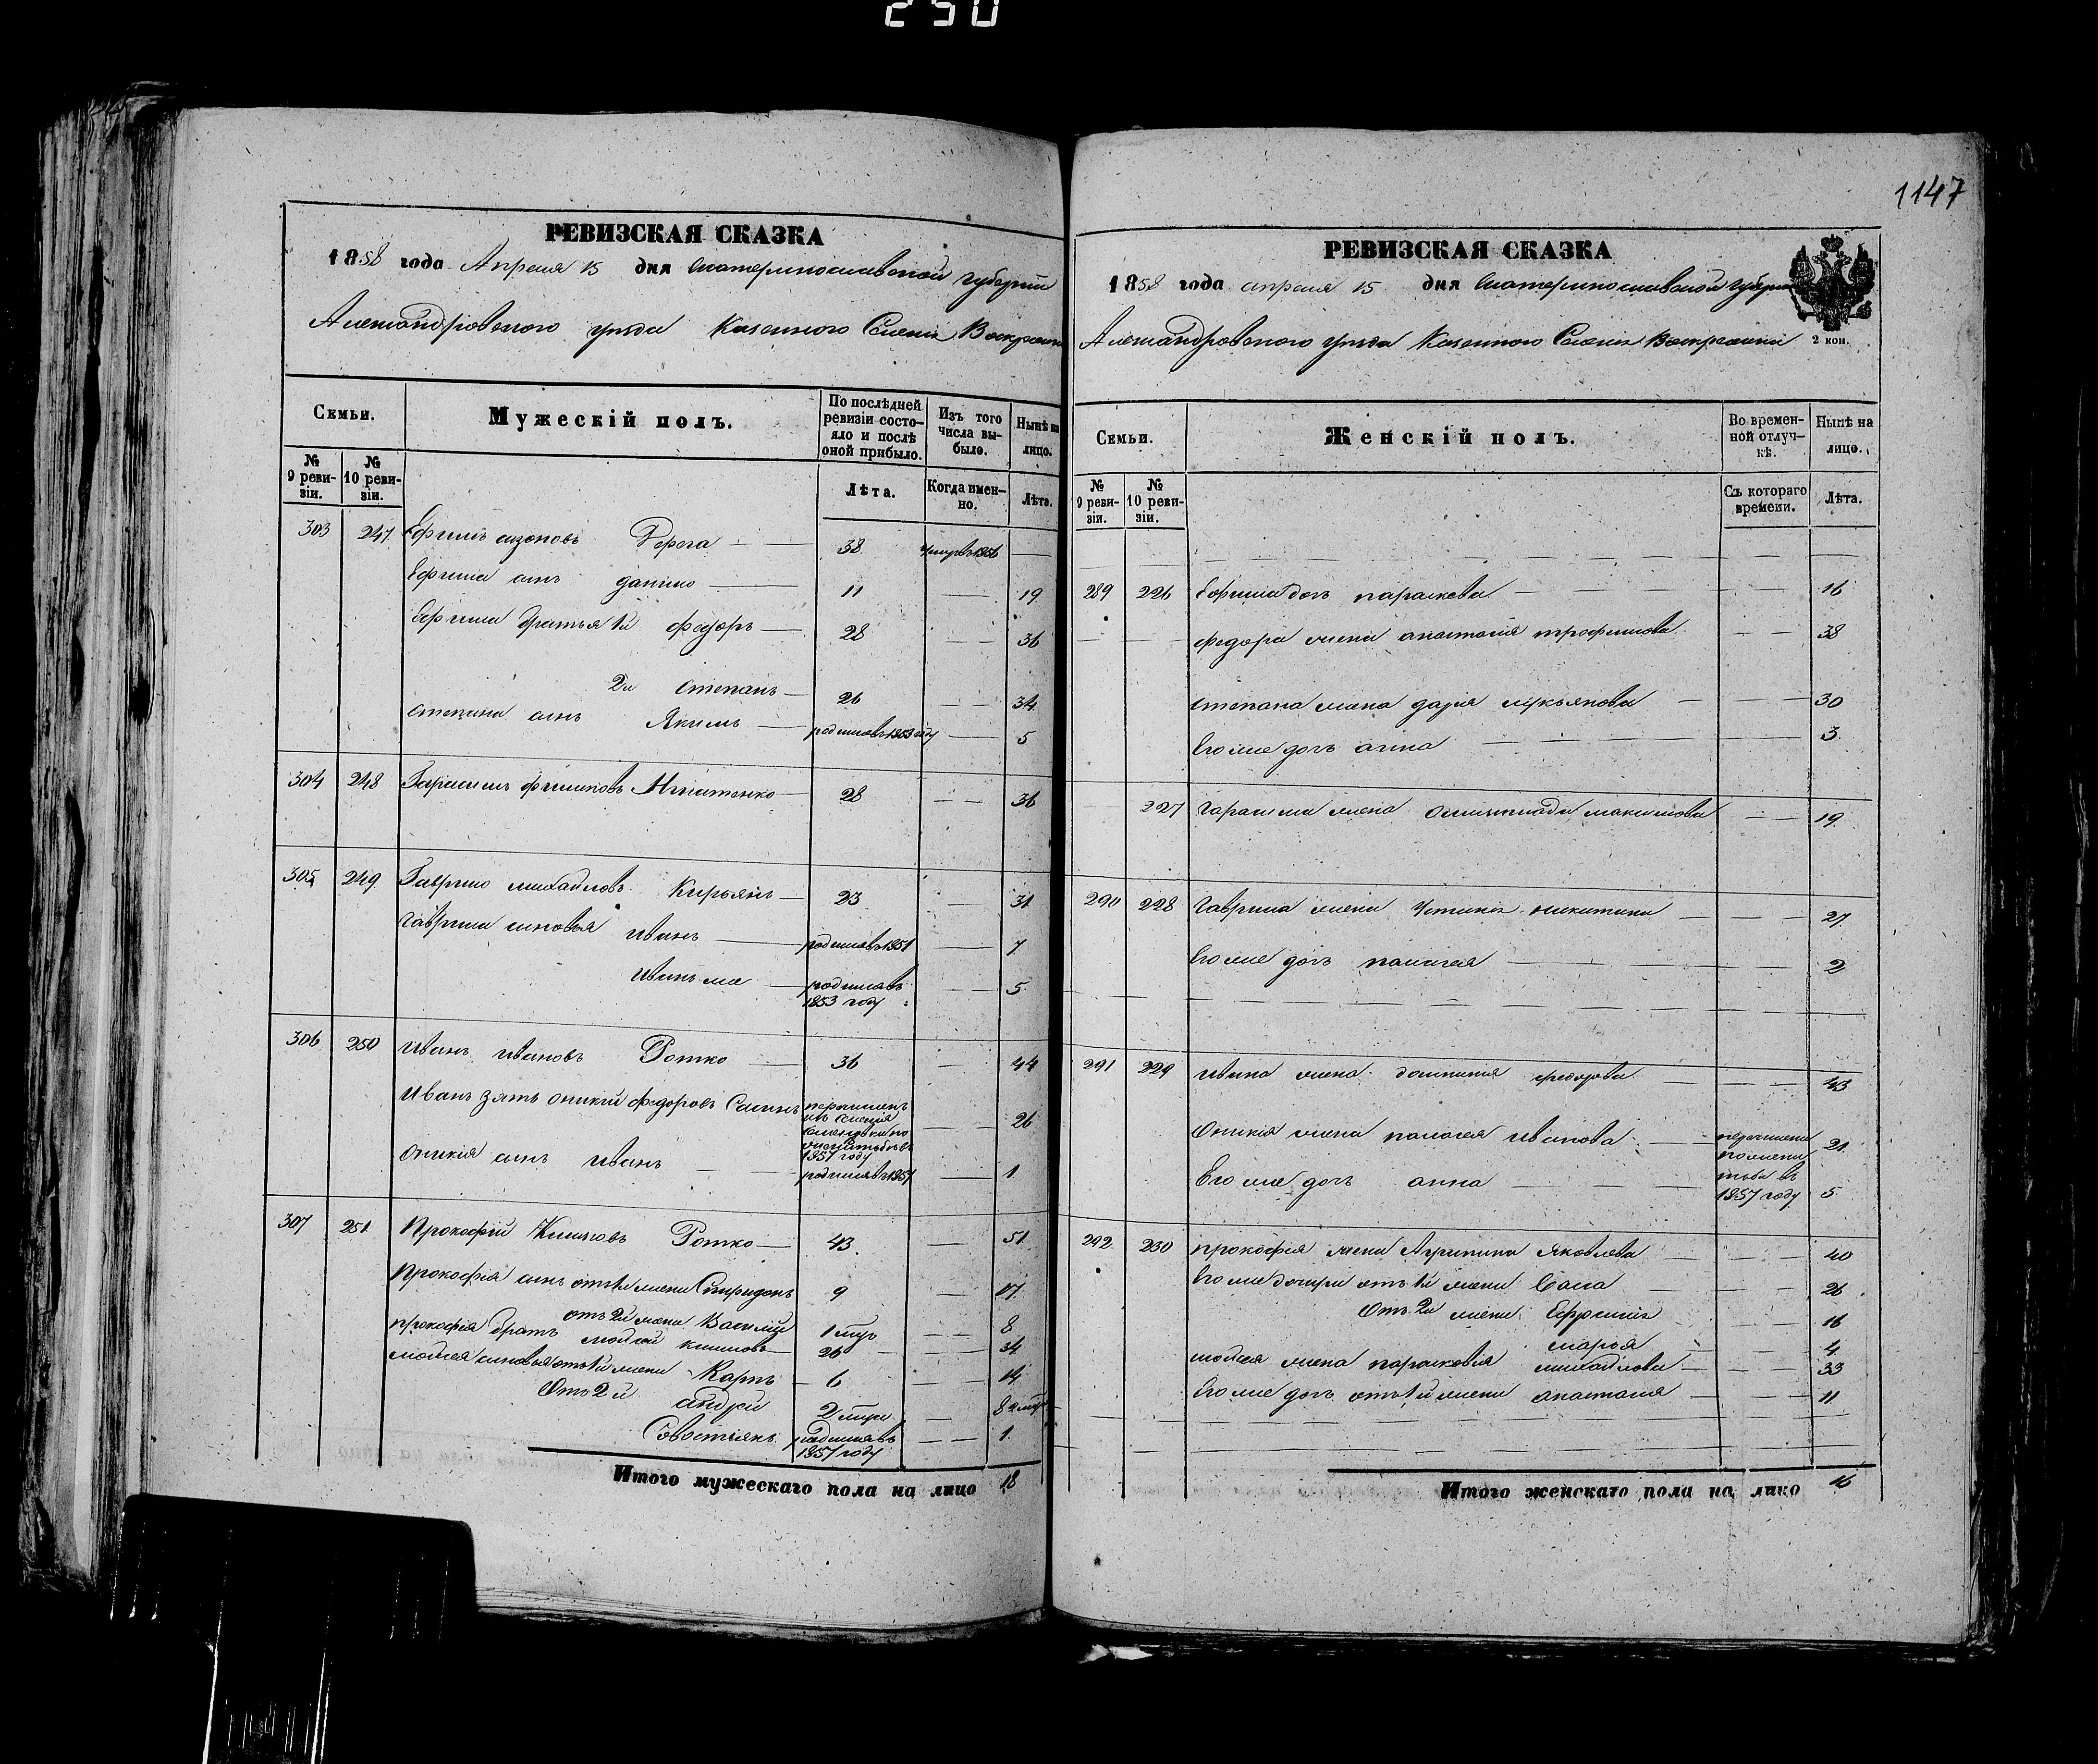 250
1147
РЕВИЗСКАЯ СКАЗКА
1858 года Апреля 15 дня Екатеринославской губернии
Александровского уезда Казенного Селения Воскресенки
Семьи. Мужескій полъ. По послѣдней ревизіи состо-яло и послѣ оной прибыло. Изъ того числа вы-было. Нынѣ на лицо.
№ 9 реви-зіи. № 10 реви-зіи. Лѣта. Когда имен-но. Лѣта.
303 247 Ефимъ Сизоновъ 38 умеръ 1856
Ефима сынъ данило 11 19
Ефима братья 1й федоръ 28 36
2й степанъ 26 34
степана сынъ Якимъ родился въ 1853 году 5
304 248 Гарасимъ 28 36
305 249 Гаврило михайловъ Кирьянъ 23 31
гаврила сыновья иванъ родился въ 1851 7
иванъ же родился въ 1853 году 5
306 250 иванъ ивановъ Ротко 36 44
Иванъ зять оникій федоровъ перечисленъ изъ селенія 1857 году 26
оникія сынъ иванъ родился въ 1857 1
307 251 Прокофій Климовъ Ротко 43 51
Прокофія сынъ отъ 1й жены Спиридонъ 9 17
отъ 2й жены Василій 1 8
прокофія братъ мойсей климовъ 26 34
мойсея сыновья отъ 1й жены Карпъ 6 14
Отъ 2й андрей 2 8
Совостьянъ родился въ 1857 году 1
Итого мужескаго пола на лицо 18
РЕВИЗСКАЯ СКАЗКА
1858 года апреля 15 дня Екатеринославской губернии
Александровского уезда Казенного Селения Воскресенки
2 коп.
Семьи. Женскій полъ. Во времен-ной отлуч-кѣ. Нынѣ на лицо.
№ 9 реви-зіи. № 10 реви-зіи. Съ котораго времени. Лѣта.
289 226 Ефима дочь параскева 16
федора жена анастасия трофимова 38
степана жена дария лукьянова 30
Его же дочь анна 3
227 гарасима жена олимпиада максимова 19
290 228 Гаврила жена Устиния никитина 27
Его же дочь палагея 2
291 229 ивана жена домникия федорова 43
Оникия жена палагея иванова 21
Его же дочь анна 5
перечислена по женитьбы въ 1857 году
292 230 прокофия жена Агрипина Яковлева 40
Его же дочери отъ 1й жены 26
Отъ 2й жены Ефросиния 16
марья 4
мойсея жена парасковия михайлова 33
Его же дочь отъ 1й жены анастасия 11
Итого женскаго пола на лицо 16